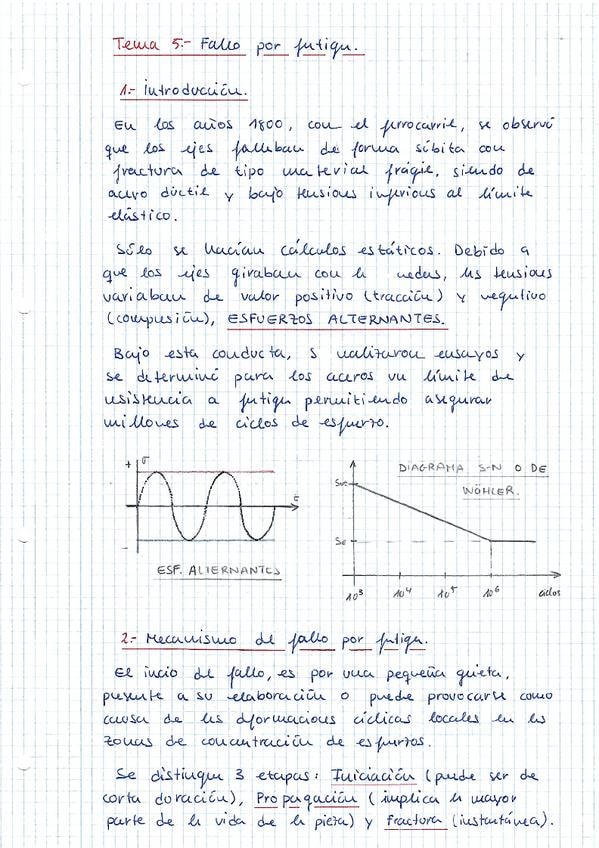 Tema 5.- Fallo por fatiga.
1.- Introducción.
En los años 1800, con el ferrocarril, se observó
que los ejes fallaban de forma súbita con
fractura de tipo material frágil, siendo de
acero dúctil y bajo tensiones inferiores al límite
elástico.
Sólo se hacían cálculos estáticos. Debido a
que los ejes giraban con la ruedas, las tensiones
variaban de valor positivo (tracción) y negativo
(compresión), ESFUERZOS ALTERNANTES.
Bajo esta conducta, s realizaron ensayos y
se determinó para los aceros un límite de
resistencia a fatiga permitiendo asegurar
millones de ciclos de esfuerzo.
+ σ
t
-
ESF. ALTERNANTES
DIAGRAMA S-N O DE
WÖHLER.
Se
10³ 10⁴ 10⁵ 10⁶ ciclos
2.- Mecanismo del fallo por fatiga.
El incio del fallo, es por una pequeña grieta,
presente a su elaboración o puede provocarse como
causa de las dformaciones cíclicas locales en las
zonas de concentración de esfuerzos.
Se distingue 3 etapas: Iniciación (puede ser de
corta duración), Propagación (implica la mayor
parte de la vida de la pieza) y fractura (instantánea).